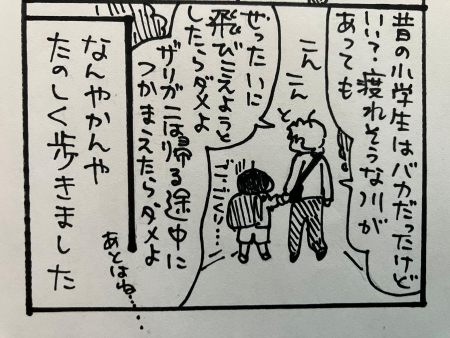 昔の小学生はバカだったけど
いい?渡れそうな川が
あっても
こんこん
と
ぜったいに
飛びこえようと
したらダメよ
ザリガニは帰る途中に
つかまえたらダメよ
あとはね……
なんやかんや
たのしく歩きました